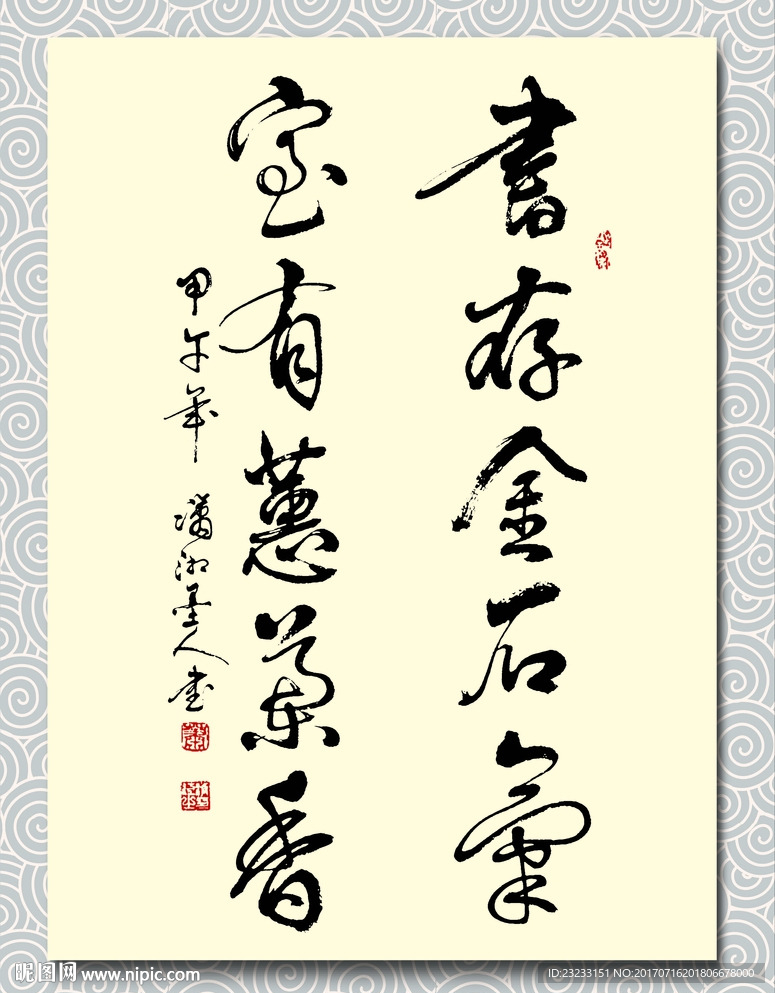 書存金石氣
室有蕙蘭香
甲午年 瀟湘墨人书
昵图网 www.nipic.com
ID:23233151 NO:20170716201806678000